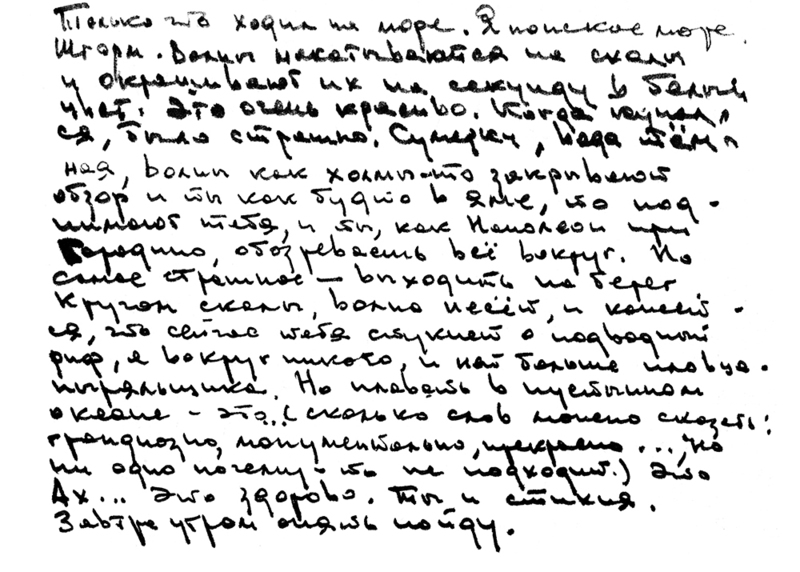 Только что ходил на море. Японское море.
Шторм. Волны накатываются на скалы
и окрашивают их на секунду в белый
цвет. Это очень красиво. Когда купал-
ся, было страшно. Сумерки, вода тём-
ная, волны как холмы-то закрывают
обзор и ты как будто в яме, то под-
нимают тебя, и ты, как Наполеон при
Бородино, обозреваешь всё вокруг. Но
самое страшное — выходить на берег
Кругом скалы, волна несёт, и кажет-
ся, что сейчас тебя стукнет о подводный
риф, а вокруг никого, и нет больше пловца-
ныряльщика. Но плавать в пустынном
океане - это... (сколько слов можно сказать:
грандиозно, монументально, прекрасно..., но
ни одно почему-то не подходит.) Это
Ах... это здорово. Ты и стихия.
Завтра утром опять пойду.